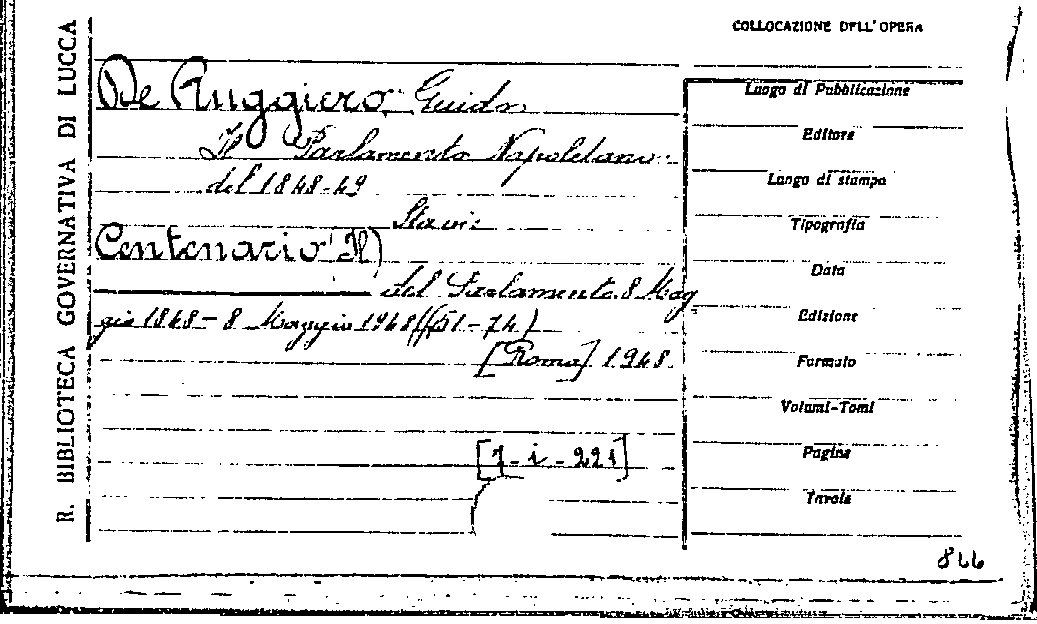 COLLOCAZIONE DELL'OPERA
R. BIBLIOTECA GOVERNATIVA DI LUCCA
De Ruggiero Guido
Il Parlamento Napoletano
del 1848-49
Sta in:
Centenario (Il)
del Parlamento 8 Mag
gio 1848 - 8 Maggio 1948 (51-74)
[Roma] 1948.
[7-i-221]
Luogo di Pubblicazione
Editore
Luogo di stampa
Tipografia
Data
Edizione
Formato
Volumi-Tomi
Pagine
Tavole
866